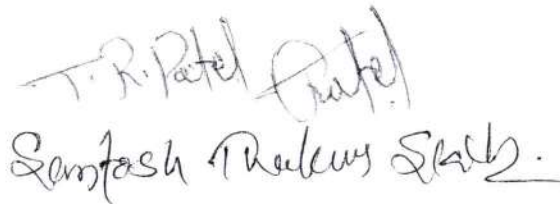 T. R. Patel Patel
Santosh Thakur